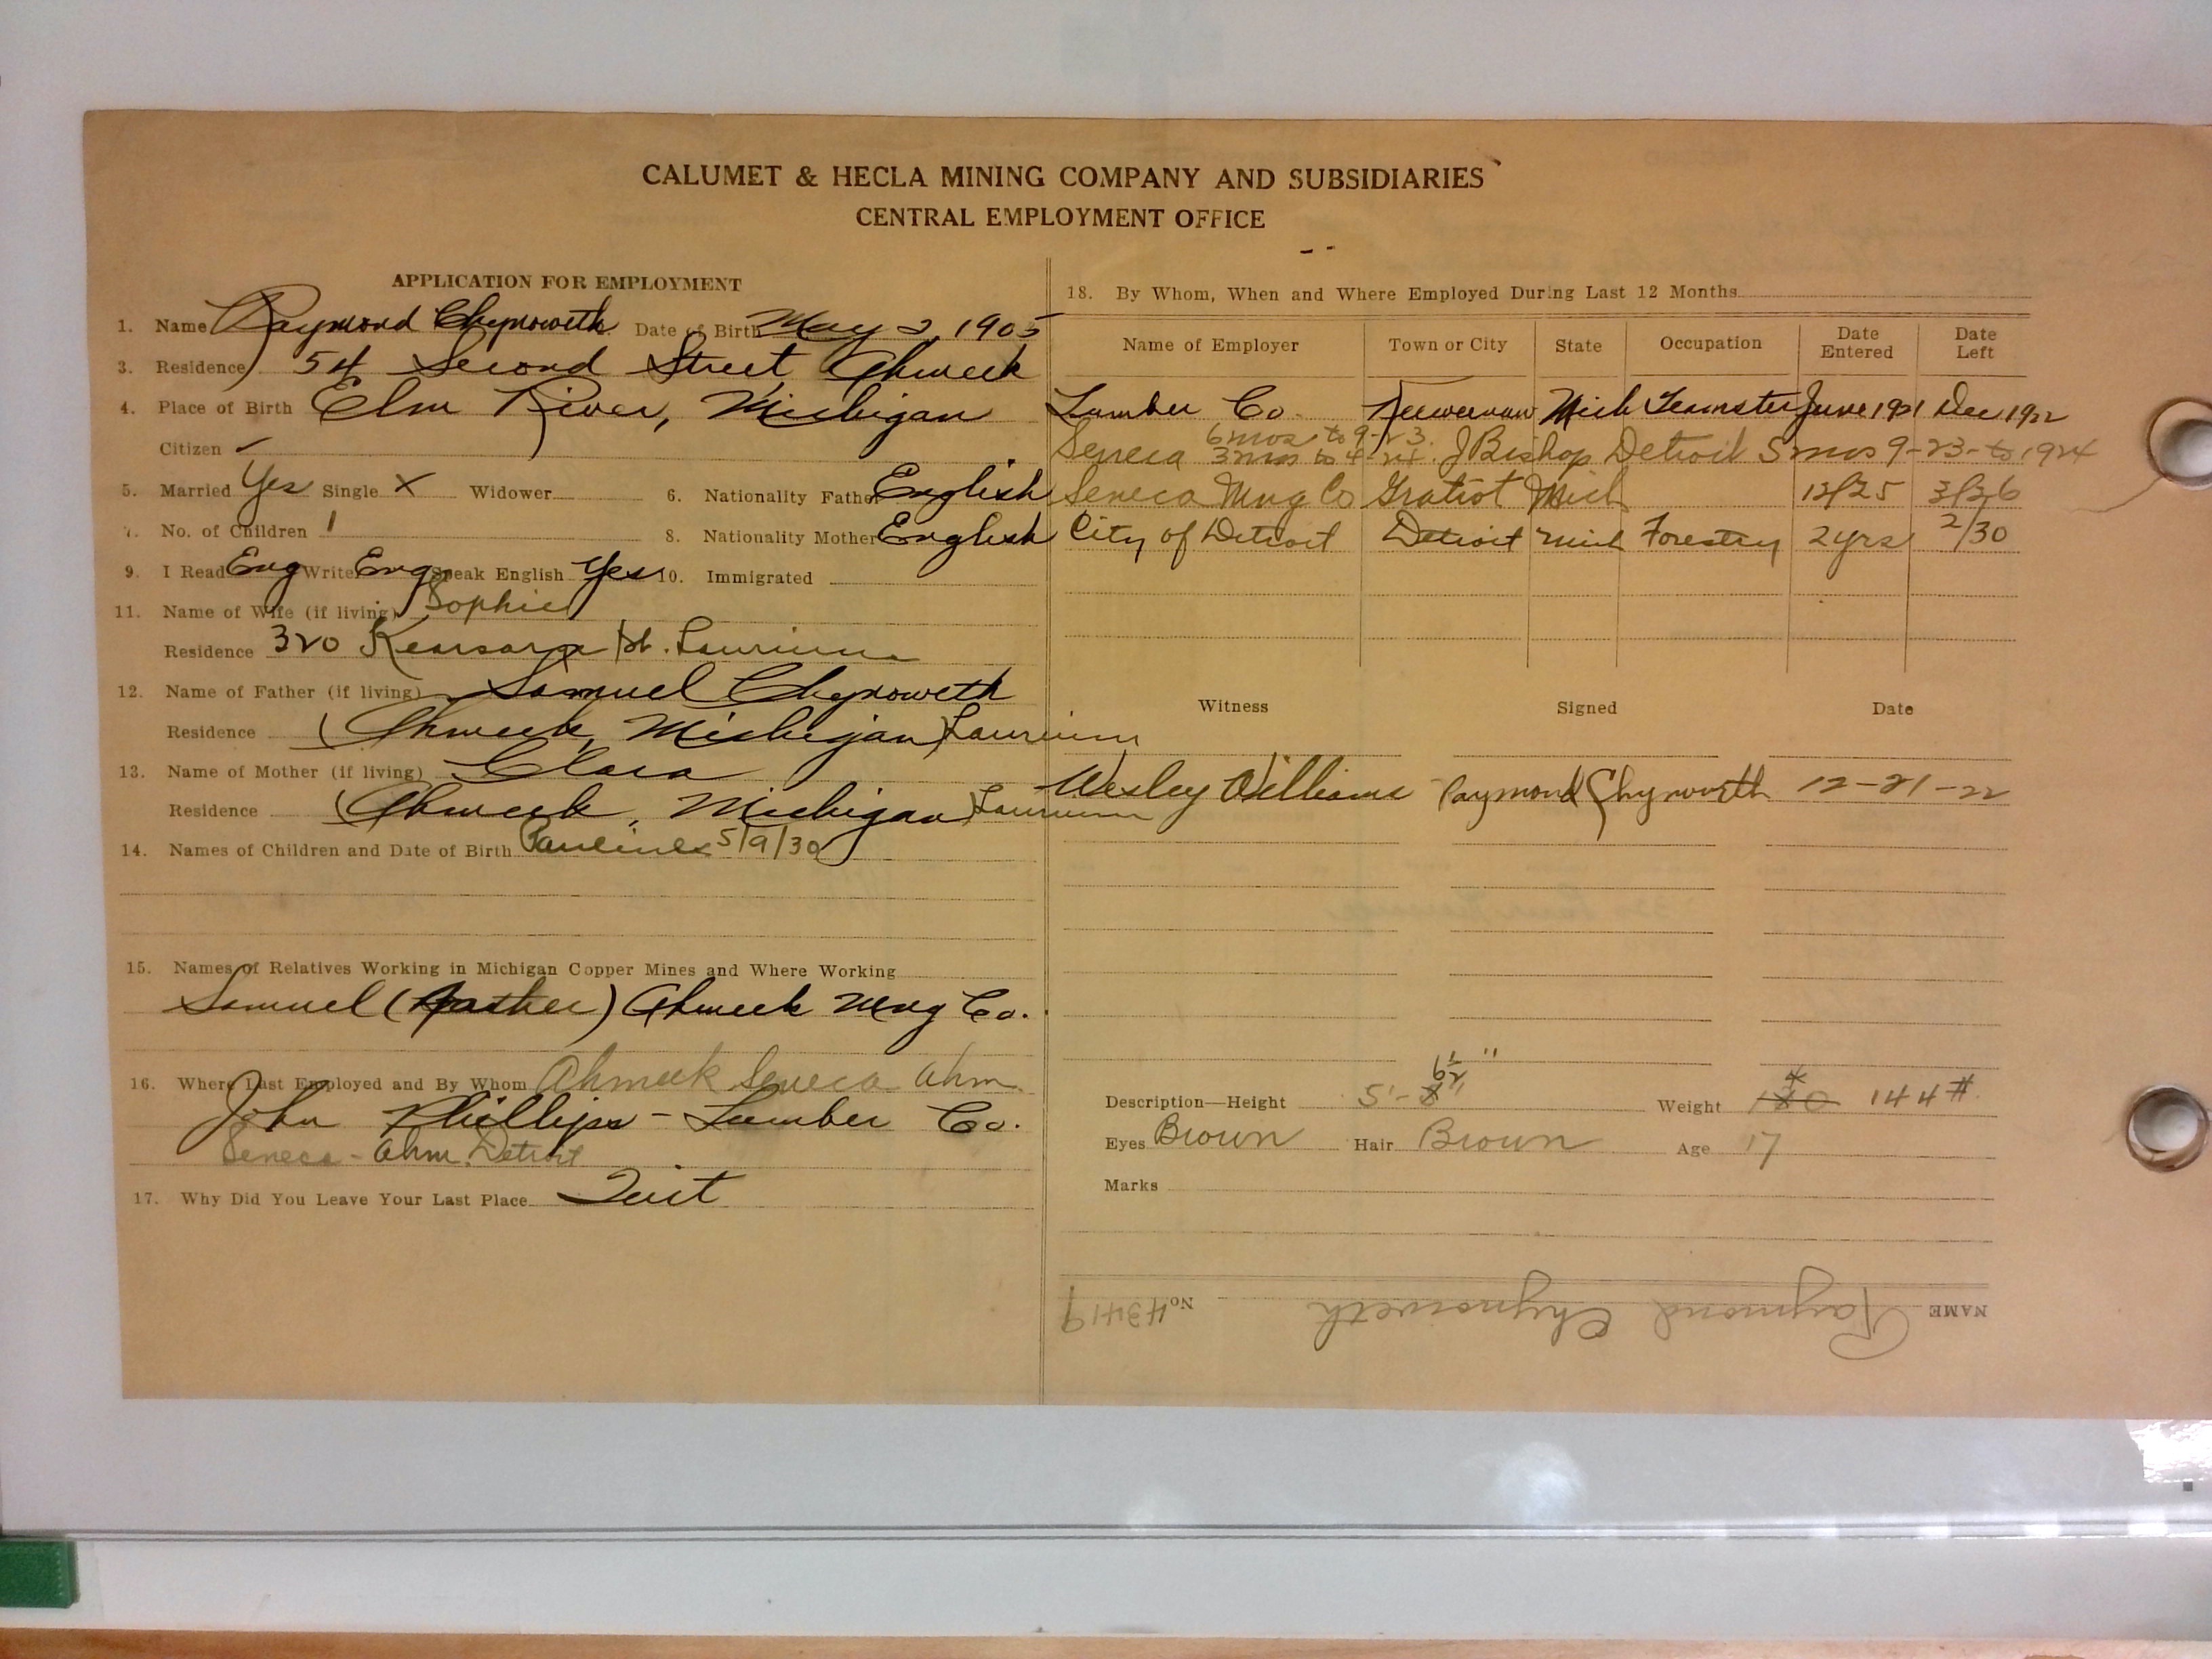 CALUMET & HECLA MINING COMPANY AND SUBSIDIARIES
CENTRAL EMPLOYMENT OFFICE
APPLICATION FOR EMPLOYMENT
1. Name Raymond Chynoweth Date of Birth May 2, 1905
3. Residence 54 Second Street, Ahmeek
4. Place of Birth Elm River, Michigan
Citizen ✓
5. Married Yes Single X Widower 6. Nationality Father English
7. No. of Children 1 8. Nationality Mother English
9. I Read Eng Write Eng Speak English Yes 10. Immigrated
11. Name of Wife (if living) Sophie
Residence 320 Kearsarge St. Laurium
12. Name of Father (if living) Samuel Chynoweth
Residence (Ahmeek, Michigan) Laurium
13. Name of Mother (if living) Clara
Residence (Ahmeek, Michigan) Laurium
14. Names of Children and Date of Birth Pauline 5/9/30
15. Names of Relatives Working in Michigan Copper Mines and Where Working
Samuel (Father) Ahmeek Mng Co.
16. Where Last Employed and By Whom Ahmeek Seneca Ahm
John Phillips - Lumber Co.
Seneca - Ahm. Detroit
17. Why Did You Leave Your Last Place Quit
18. By Whom, When and Where Employed During Last 12 Months
Name of Employer Town or City State Occupation Date Entered Date Left
Lumber Co. Keweenaw Mich Teamster June 1921 Dec 1922
6 mos to 9-23.
Seneca 3 mos to 4-24. J Bishop Detroit 5 mos 9-23- to 1924
Seneca Mng Co Gratiot Mich 12/25 3/26
City of Detroit Detroit Mich Forestry 2 yrs 2/30
Witness Signed Date
Wesley Williams Raymond Chynoweth 12-21-22
6 1/2 "
Description—Height 5'-8" Weight 130 144#
Eyes Brown Hair Brown Age 17
Marks
NAME Raymond Chynoweth No. 43419